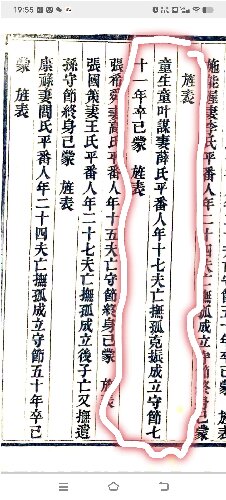 19:55
施能握妻李氏平番人年二十四夫亡撫孤成立守節終身已蒙
旌表
童生童叶謀妻薛氏平番人年十七夫亡撫孤克振成立守節七
十一年卒已蒙 旌表
張希舜妻高氏平番人年十五夫亡守節終身已蒙 旌表
張國英妻王氏平番人年二十七夫亡撫孤成立後子亡又撫遺
孫守節終身已蒙 旌表
康孫妻閻氏平番人年二十四夫亡撫孤成立守節五十年卒已
蒙 旌表